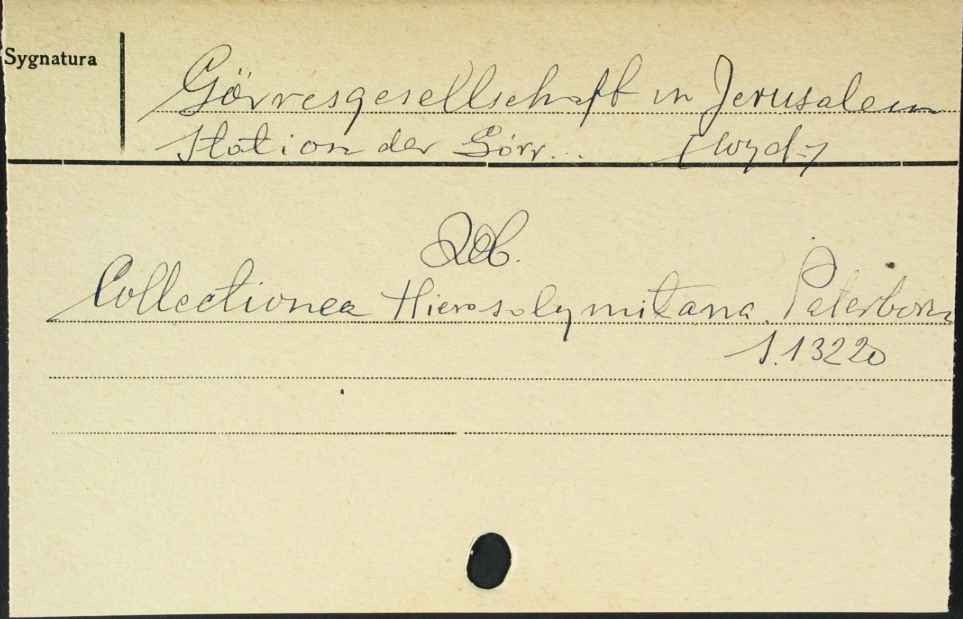 Sygnatura
Görresgesellschaft in Jerusalem
Station der Görr... [wyd.]
Zob.
Collectionea Hierosolymitana. Paterborn
1.13220